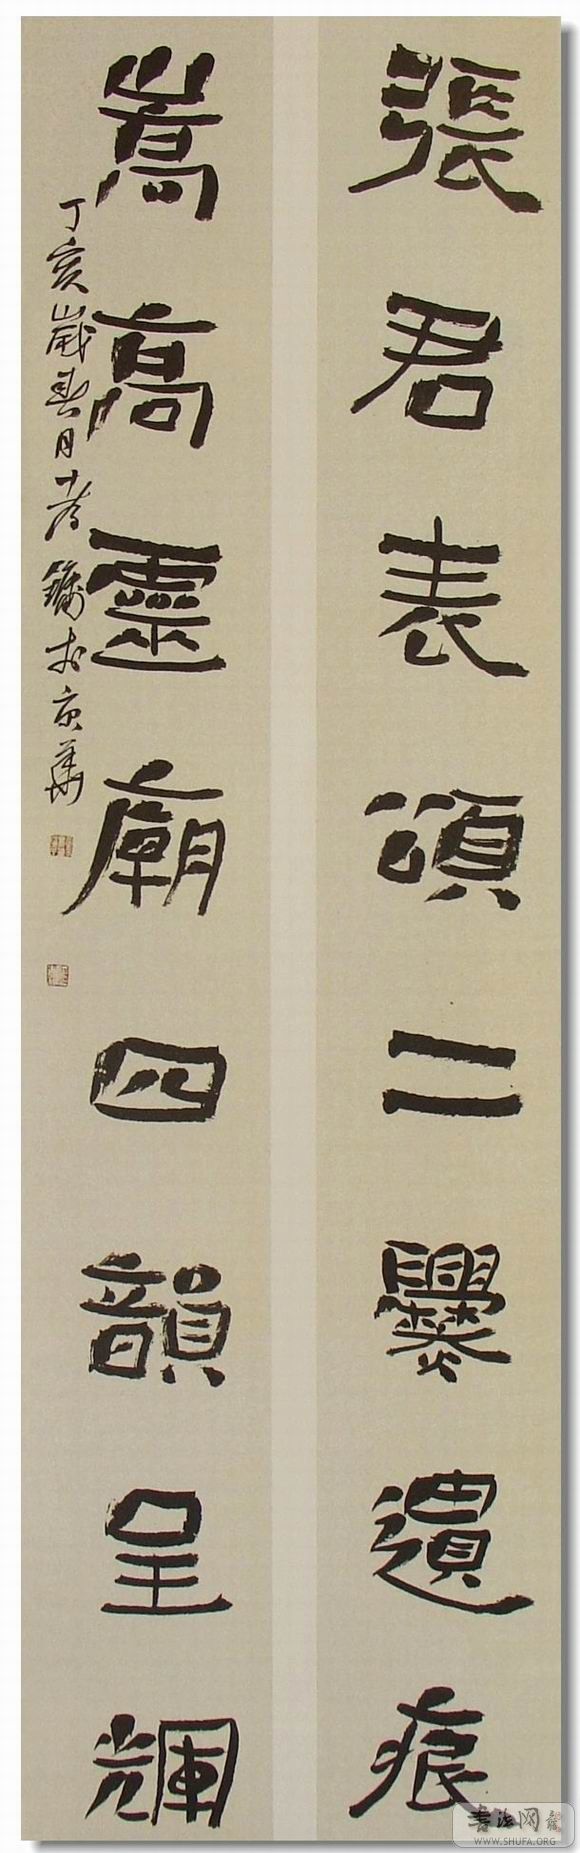 張君表頌二爨遺痕
嵩高靈廟四韻呈輝
丁亥歲春月於京華
书法网
WWW.SHUFA.ORG